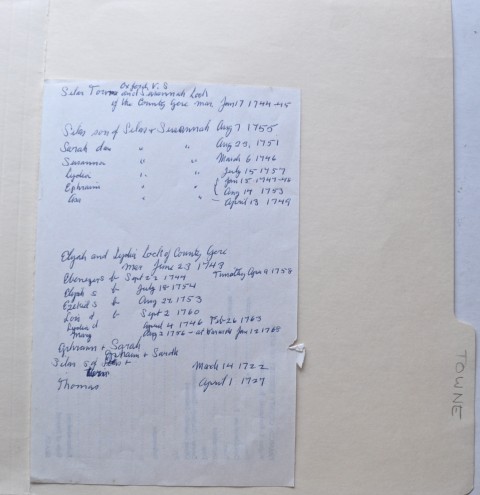 Oxford V. R
Silas Towne and Susannah Lock
of the County Gore mar Jan 17 1744-45
Silas son of Silas & Susannah Aug 7 1755
Sarah dau " " Aug 29, 1751
Susanna " " March 6 1746
Lydia " " July 15 1757
Ephraim " " Aug 14 1753
" " April 13 1749
Elijah and Lydia Lock of County Gore
mar June 23 1743
Ebenezer s b Sept 22 1744 Timothy Apr 4 1758
Elijah s b July 18 1754
Ezekiel s b Aug 22 1753
d b Sept 2 1760
Lydia d April 4 1746 Feb 26 1763
Mary Aug 2 1756 - at
Ephraim & Sarah
Ephraim & Sarah
Silas s of March 14 1722
Thomas April 1 1727
TOWNE